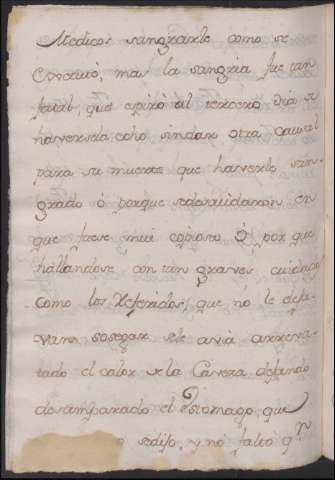 Medicos sangrarle como se
executó, mas la sangria fue tan
fatal, que espiró al tercero dia de
haversela echo sin dar otra causal
para su muerte que haverle san-
grado ó porque se descuidaron en
que fuese mui copioso ó por que
hallandose con tan graves cuidados
como los Referidos, que no le deja-
van sosegar se le avia arreva-
tado el calor de la Cavesa dejando
desamparado el Estomago, que
o se dijo, y no faltó qn